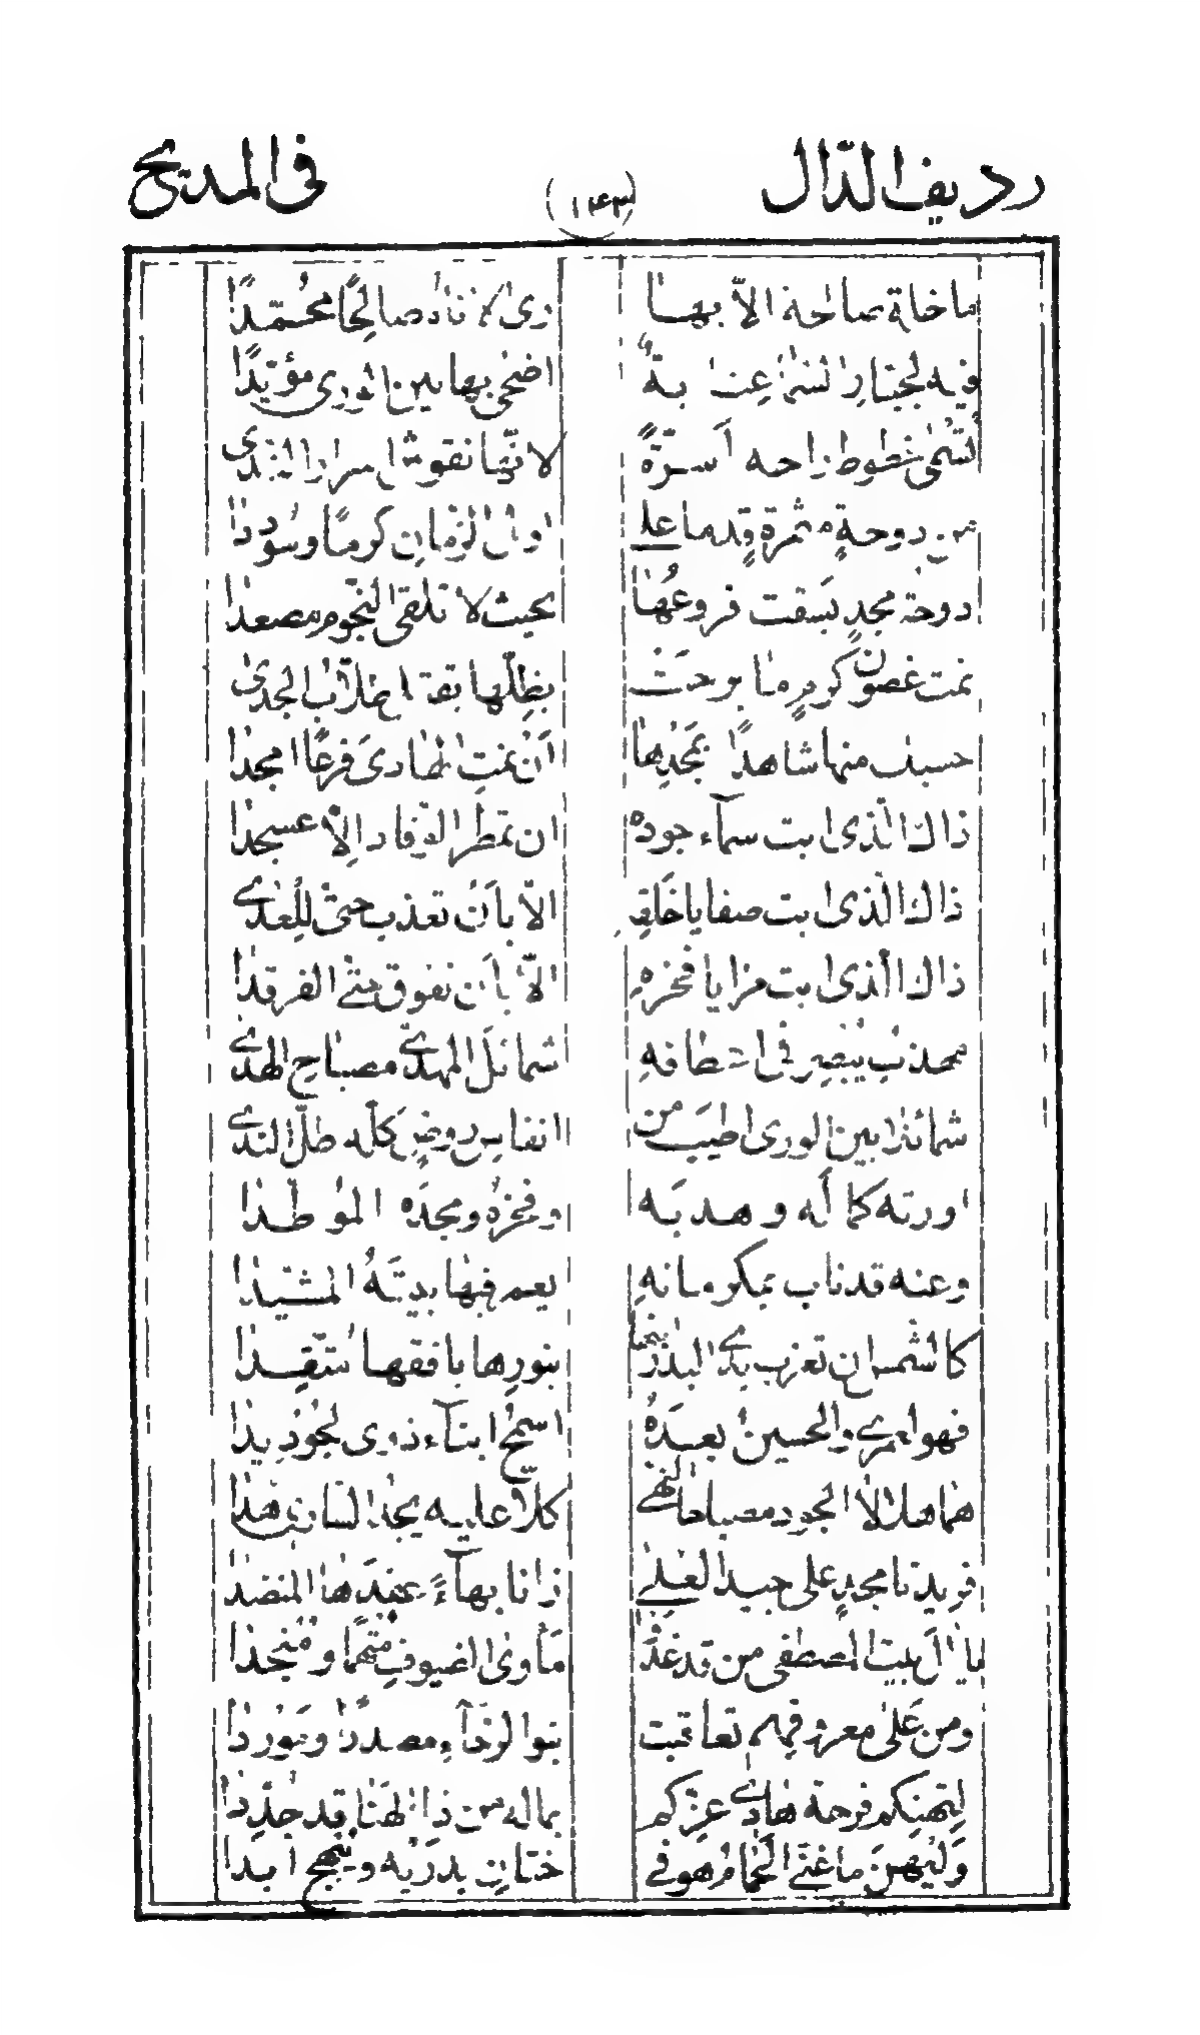 رديف الدّال (١٤٣) في المديح
ما خلة صالحة الاّ بها ورى زناد صالحًا محمّدًا
فيه لجبّار السّما عناية اضحى بها بين الورى مؤيّدًا
تسمى خطوط راحه أسرّةً لانّها نقوش اسرار النّدى
من دوحةٍ مثمرةٍ قد ما على اولى الزّمان كرمًا وسوددا
دوحة مجدٍ بسقت فروعُها بحيث لا تلقى النّجوم مصعدا
نمت غصون كرمٍ ما برحَتْ بظلّها طلاّب الجدى
حسبك منها شاهدًا بمَجدِها أنْ نمتِ الهادىَ فرعًا امجدا
ذاك الّذى ابت سمآء جوده ان تمطر الوفّاد الاّ عسجدا
ذاك الّذى ابت صفايا خَلقِه الاّ بأَن تعذب حتىّ للعدى
ذاك الّذى ابت مزايا فخرهِ الاّ بأَن تفوق حتى الفرقدا
مهذب يُبصِر فى اعطافهِ شمائلَ المهدىّ مصباحِ الهدى
شمائلا بين الورى اطيَبَ من انفاسِ روضٍ كلّله طلّ الندى
اورثه كمالَه وهديَه وفخرَهُ ومجدَه الموطّدا
وعنه قد ناب بمكرماتهِ يعمر فيها بيتَهُ المشيّدا
كالشّمس ان تغرب يدى البدر بنورِها بافقها متّقِدا
فهو لعمرى والحسينُ بعدَهُ اسمحُ ابنآء ذوى الجُودِ يدا
هما هلالا الجود مصباحا النّهى كلاّ عليه يجد السّارى هدى
فريدتا مجدٍ على جيد العُلىٰ زانا بهآءً عِقدَها المنضّدا
يا الَ بيت المصطفى من قد غدا مأوى الضيوفِ مُتْهِمًا ومُنْجِدا
ومن عَلى معروفهم تعاقبت بنوا الرّجآءِ مصدرًا ومَوردا
لِتهنِكم فرحة هادى عزّكم بماله من ذا الهنا قد جدّدا
وَليُهنَ ما غنّى الحَمامُ هو فى ختان بدرَيْه ويبهج ابدا